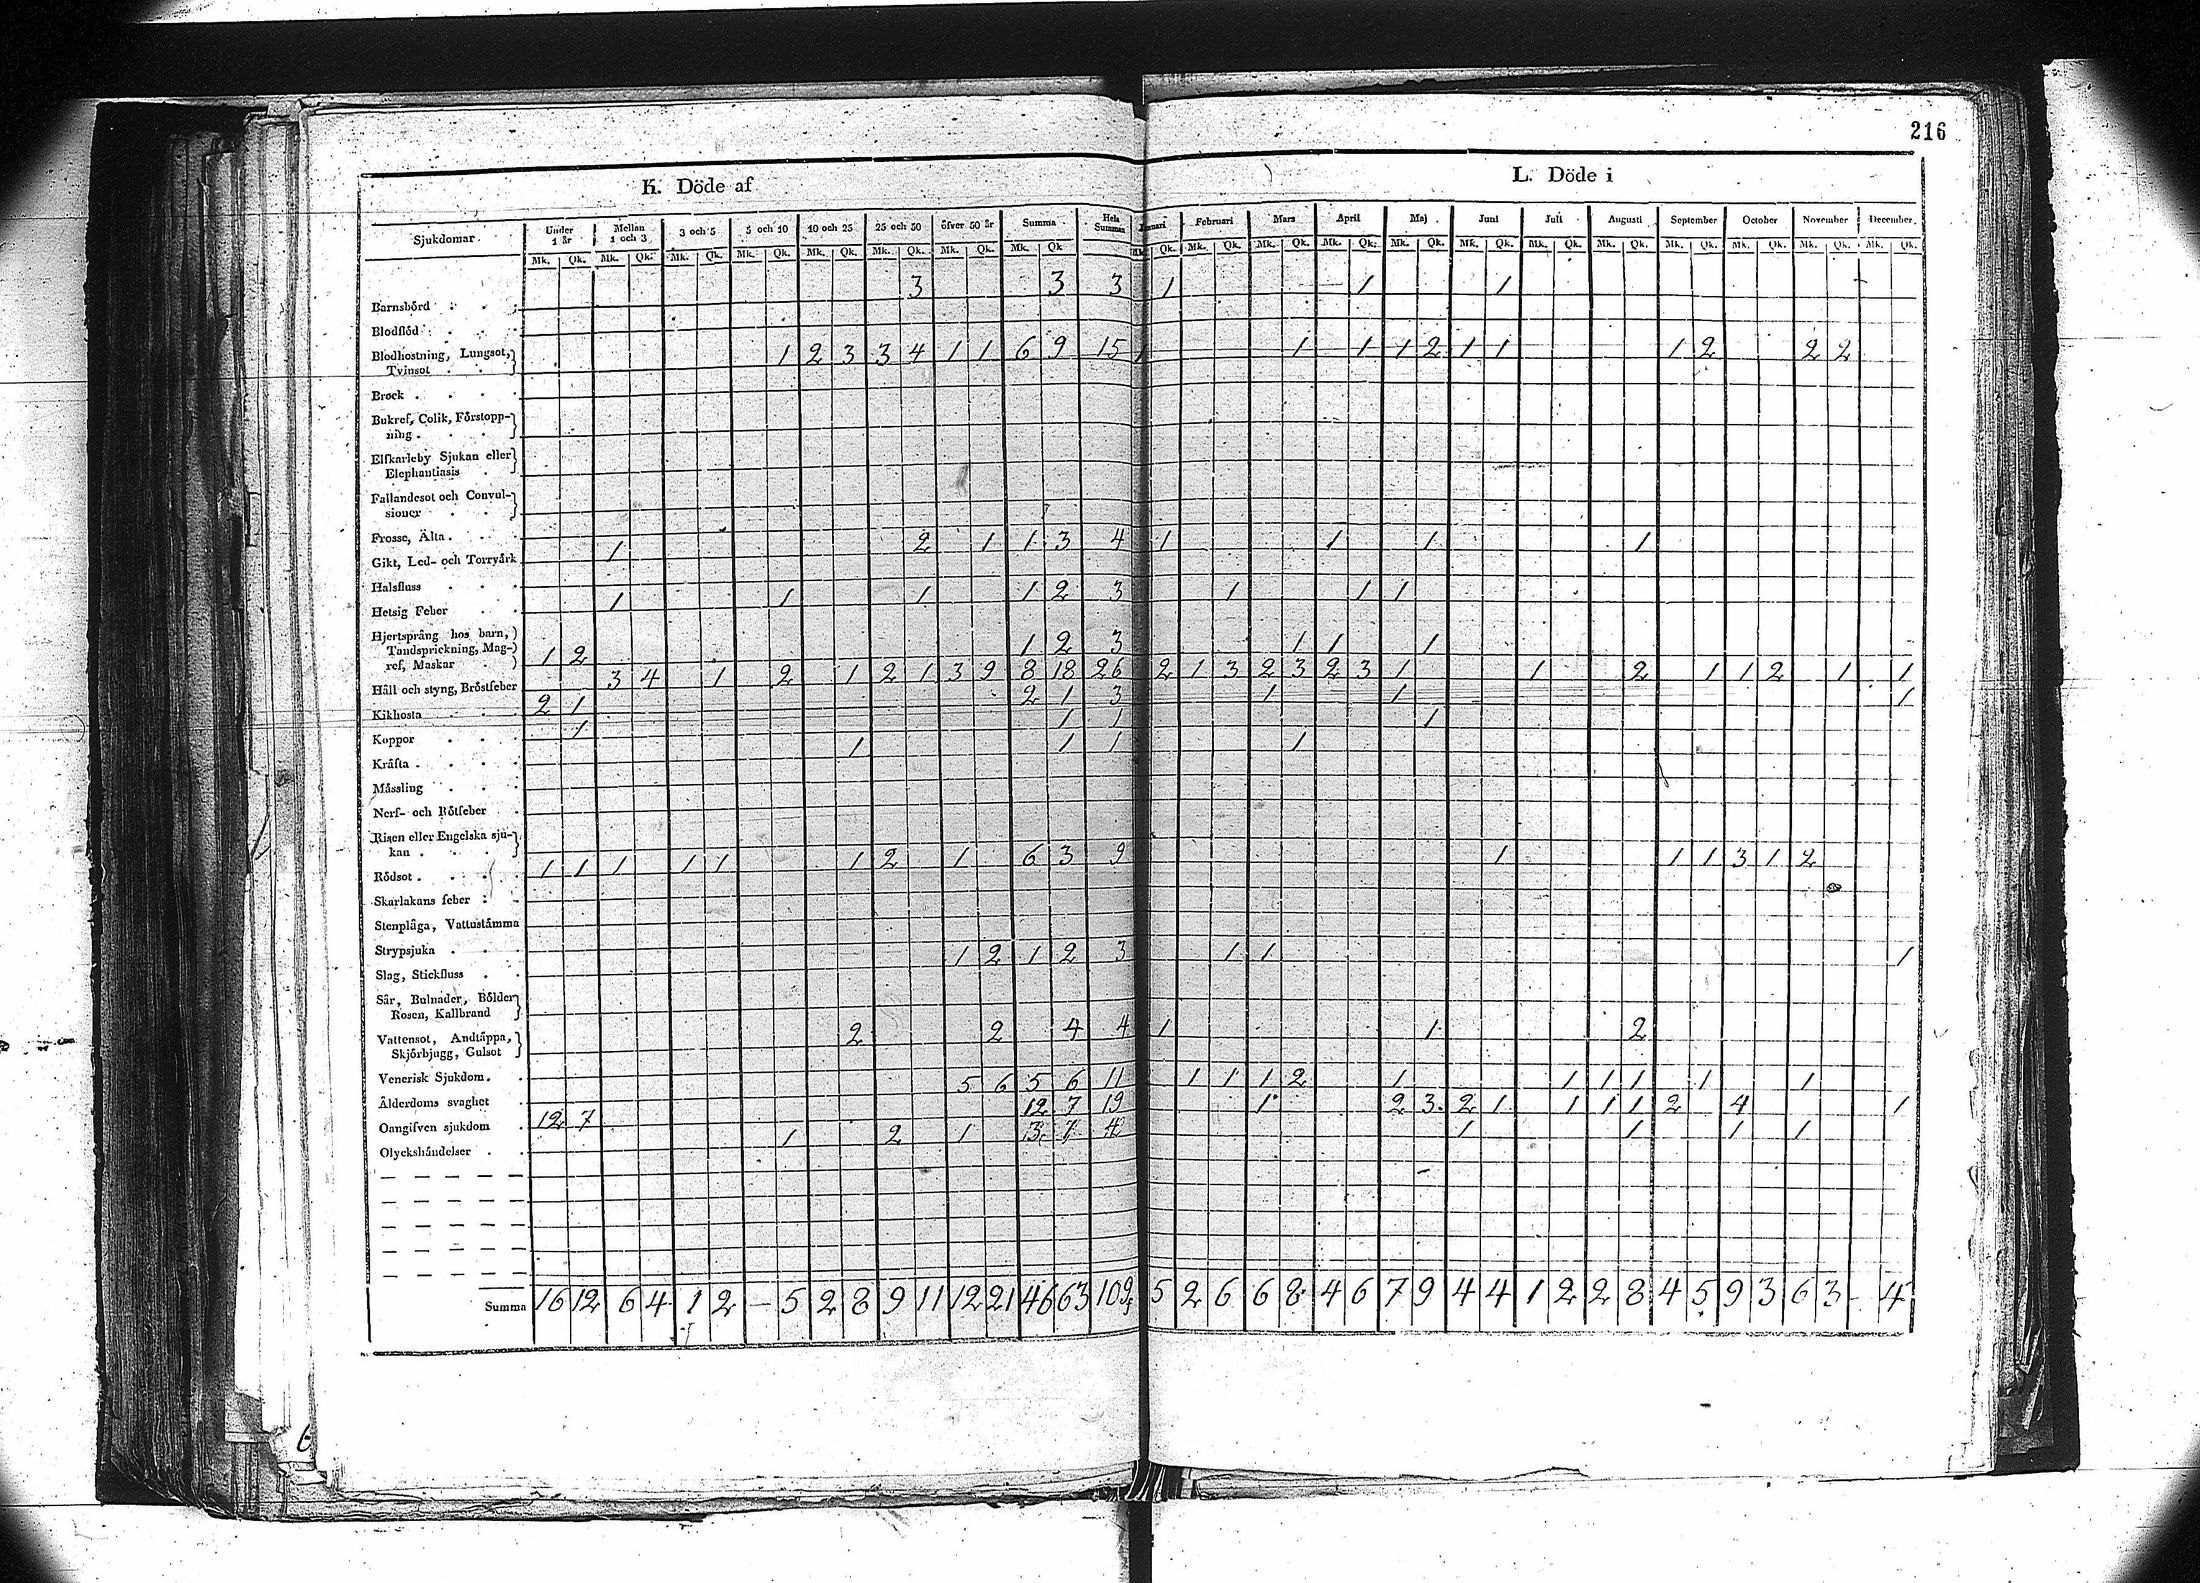 216
K. Döde af
L. Döde i
Sjukdomar. Under 1 år Mellan 1 och 3 3 och 5 5 och 10 10 och 25 25 och 50 öfver 50 år Summa Hela Summan Februari Mars April Maj Juni Juli Augusti September October November December
Mk. Qk. Mk. Qk. Mk. Qk. Mk. Qk. Mk. Qk. Mk. Qk. Mk. Qk. Mk. Qk Qk. Mk. Qk. Mk. Qk. Mk. Qk. Mk. Qk. Mk. Qk. Mk. Qk. Mk. Qk. Mk. Qk. Mk. Qk. Mk. Qk. Mk. Qk.
Barnsbörd 3 3 3 1 1 1
Blodflöd
Blodhostning, Lungsot,
Tvinsot 1 2 3 3 4 1 1 6 9 15 1 1 1 1 2 1 1 1 2 2 2
Brock
Bukref, Colik, Förstopp-
ning
Elfkarleby Sjukan eller
Elephantiasis
Fallandesot och Convul-
sioner
Frosse, Älta
Gikt, Led- och Torrvärk 1 2 1 1 3 4 1 1 1 1
Halsfluss
Hetsig Feber 1 1 1 1 2 3 1 1 1
Hjertsprång hos barn,
Tandsprickning, Mag-
ref, Maskar 1 2 1 2 3 1 1 1
Håll och styng, Bröstfeber 3 4 1 2 1 2 1 3 9 8 18 26 2 1 3 2 3 2 3 1 1 2 1 1 2 1 1
Kikhosta 2 1 2 1 3 1 1 1
Koppor 1 1 1 1
Kräfta 1 1 1 1
Mässling
Nerf- och Rötfeber
Risen eller Engelska sju-
kan
Rödsot 1 1 1 1 1 1 2 1 6 3 9 1 1 1 3 1 2
Skarlakans feber
Stenplåga, Vattustämma
Strypsjuka
Slag, Stickfluss 1 2 1 2 3 1 1 1
Sår, Bulnader, Bölder
Rosen, Kallbrand
Vattensot, Andtäppa,
Skjörbjugg, Gulsot 2 2 4 4 1 1 2
Venerisk Sjukdom
Ålderdoms svaghet 5 6 5 6 11 1 1 1 2 1 1 1 1 1 1
Oangifven sjukdom 12 7 12 7 19 1 2 3 2 1 1 1 1 2 4 1
Olyckshändelser 1 2 1 3 1 4 1 1 1 1
Summa 16 12 6 4 1 2 — 5 2 8 9 11 12 21 46 63 109 5 2 6 6 8 4 6 7 9 4 4 1 2 2 8 4 5 9 3 6 3 4